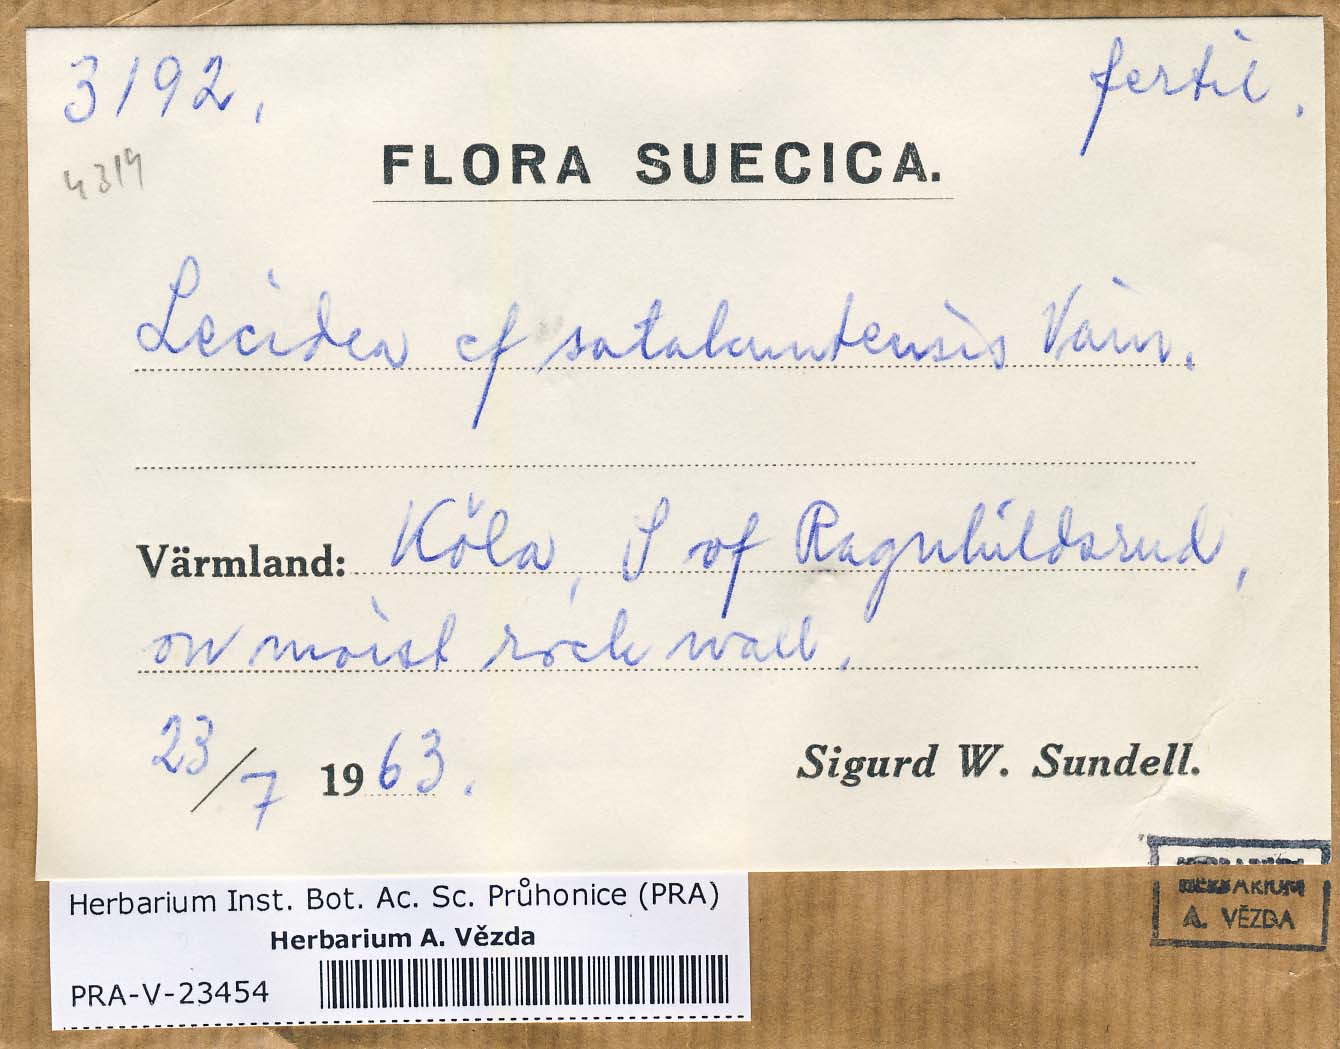 3192.
fertil.
4319
FLORA SUECICA.
Lecidea cf satakuntensis Vain.
Värmland: Köla, S of Ragnhildsrud,
on moist rock wall.
23/7 1963.
Sigurd W. Sundell.
HERBARIUM
A. VĚZDA
Herbarium Inst. Bot. Ac. Sc. Průhonice (PRA)
Herbarium A. Vězda
PRA-V-23454